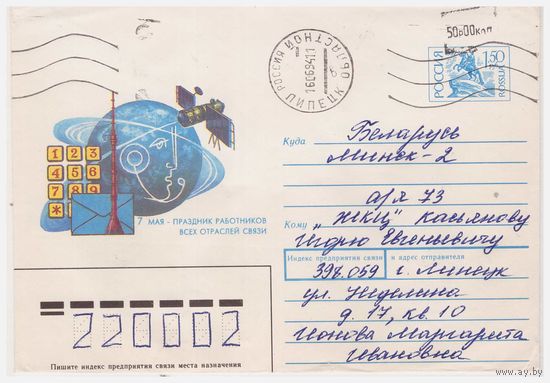 50р00коп
РОССИЯ 1.50
ROSSIJA
РОССИЯ ЛИПЕЦК ОБЛАСТНОЙ
160694 11
1 2 3
4 5 6
7 8 9
*
7 МАЯ - ПРАЗДНИК РАБОТНИКОВ
ВСЕХ ОТРАСЛЕЙ СВЯЗИ
Куда Беларусь
Минск-2
а/я 73
Кому "НКЦ" Касьянову
Игорю Евгеньевичу
Индекс предприятия связи и адрес отправителя
398.059 г. Липецк
ул. Неделина
д. 17, кв. 10
Ионова Маргарита
Ивановна
220002
Пишите индекс предприятия связи места назначения
www.ay.by